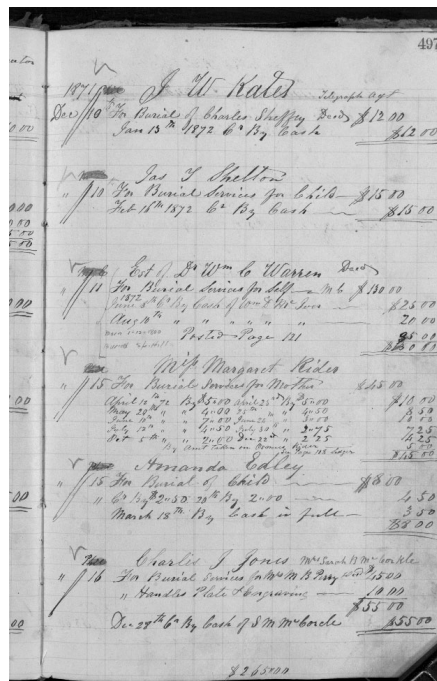 497
1871 J W Kates Telegraph Agt
Dec 10 For Burial of Charles Sheffey Decd $12 00
Jan 13th 1872 Cr By Cash $12 00
Jas T Shelton
" 10 For Burial Services for Child $15 00
Feb 16th 1872 Cr By Cash $15 00
Est of Dr Wm C Warren Decd
" 11 For Burial Services for Self $130 00
1872 June 8th Cr By Cash of $25 00
Aug 10th " " " " " 20 00
Posted Page 121
Miss Margaret Rider
" 15 For Burial Services for Mother $45 00
April 10th 72 By $5 00 April 23rd By 5 00 $10 00
May 20th " 4 00 25th " 4 50 8 50
June " 7 00 June
July 13th " 4 50 July 30th " 2 75 7 25
Oct " 2 00 Dec 23rd " 2 25 4 25
$45 00
Amanda Edley
" 15 For Burial of Child $8 00
" Cr By $2 50 20th By 2 00 4 50
March 18th By Cash in full 3 50
$8 00
Charles J Jones Mrs Sarah B McCorkle
" 16 For Burial Services for Mrs M B Perry Decd $45 00
" Handles Plate & Engraving 10 00
$55 00
Dec 28th Cr By Cash of S M McCorcle $55 00
$265 00